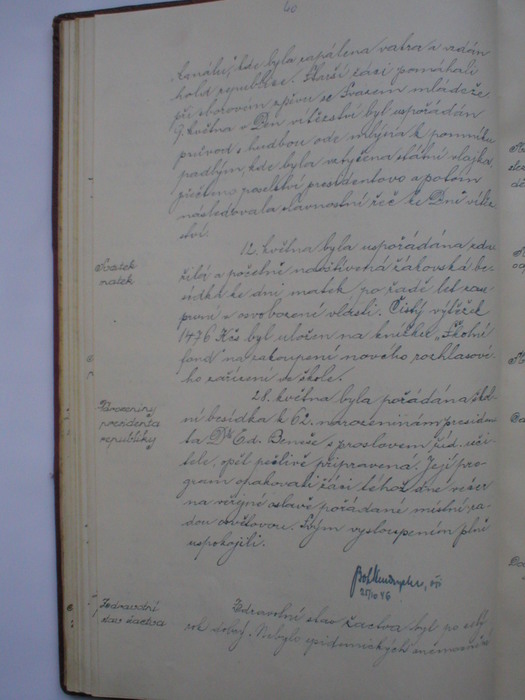 40
kanálu", kde byla zapálena vatra a vzdán
hold republice. Starší žáci pomáhali
při sborovém zpěvu se Svazem mládeže
9. května v Den vítězství byl uspořádán
průvod s hudbou ode mlýna k pomníku
padlým, kde byla vztyčena státní vlajka,
přečteno poselství presidentovo a potom
následovala slavnostní řeč ke Dni vítěz-
ství.
Svátek
matek
12. května byla uspořádána zdar
řilá a početně navštívená žákovská be-
sídka ke dni matek po řadě let zase
první v osvobozené vlasti. Čistý výtěžek
1476 Kčs byl uložen na knížku „Školní
fond" na zakoupení nového rozhlasové-
ho zařízení ve škole.
Narozeniny
prezidenta
republiky
28. května byla pořádána škol-
ní besídka k 62. narozeninám presiden-
ta Dr Ed. Beneše s proslovem říd. uči-
tele, opět pečlivě připravená. Její pro-
gram opakovali žáci téhož dne večer
na veřejné oslavě pořádané místní ra-
dou osvětovou. Svým vystoupením plně
uspokojili.
25/10 46
Zdravotní
stav žactva
Zdravotní stav žactva byl po celý
rok dobrý. Nebylo epidemických